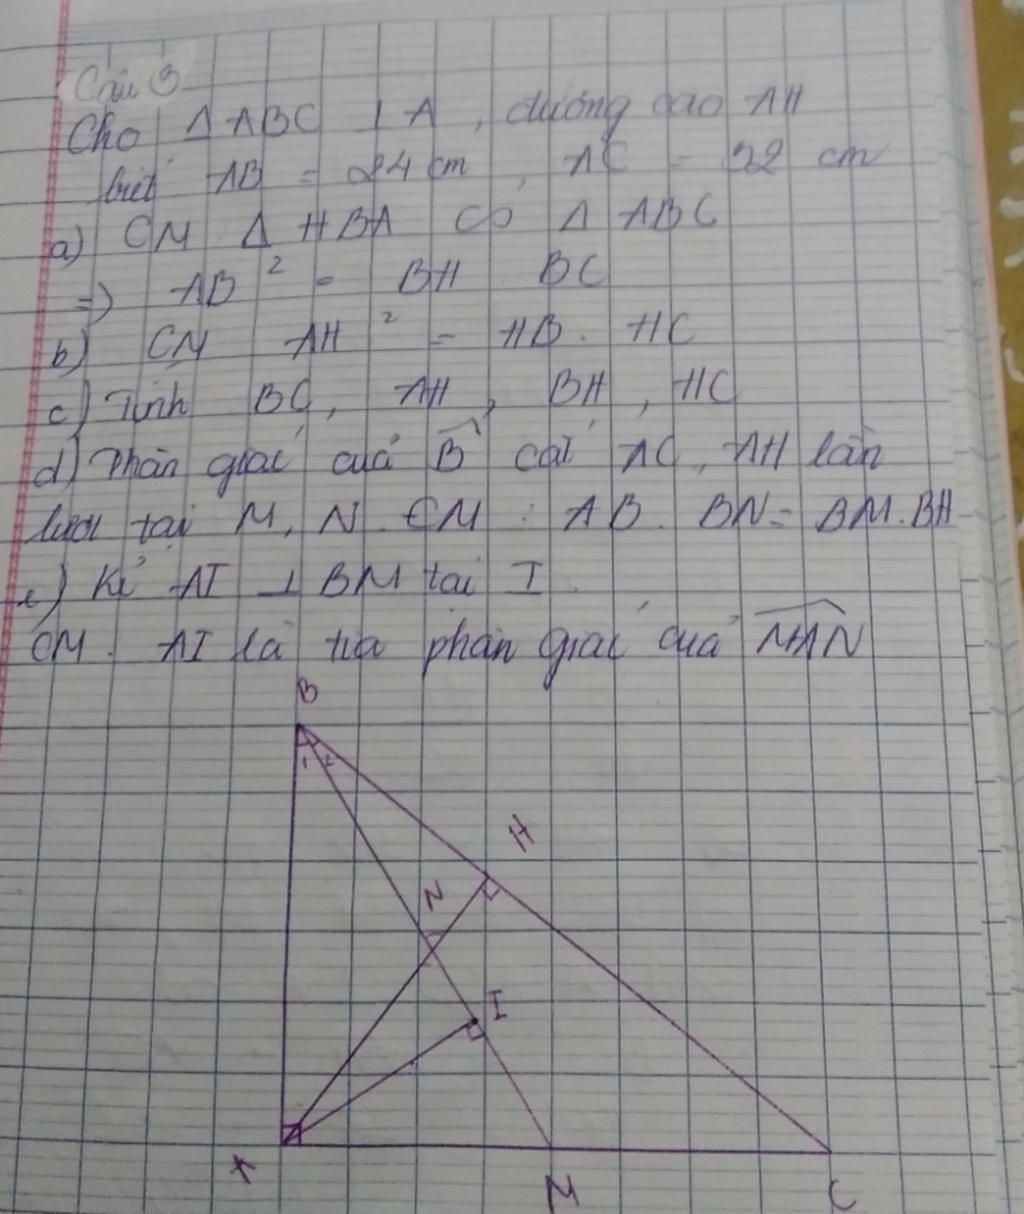 Câu 3
Cho Δ ABC ⊥ A, đường cao AH
biết AB = 24 cm, AC = 32 cm
a) CM Δ HBA ∽ Δ ABC
=> AB² = BH BC
b) CM AH² = HB. HC
c) Tính BC, AH, BH, HC
d) Phân giác của B̂ cắt AC, AH lần
lượt tại M, N. CM: AB. BN = BM.BH
e) Kẻ AI ⊥ BM tại I.
CM. AI là tia phân giác của MAN
B
1 2
H
N
I
A
M
C